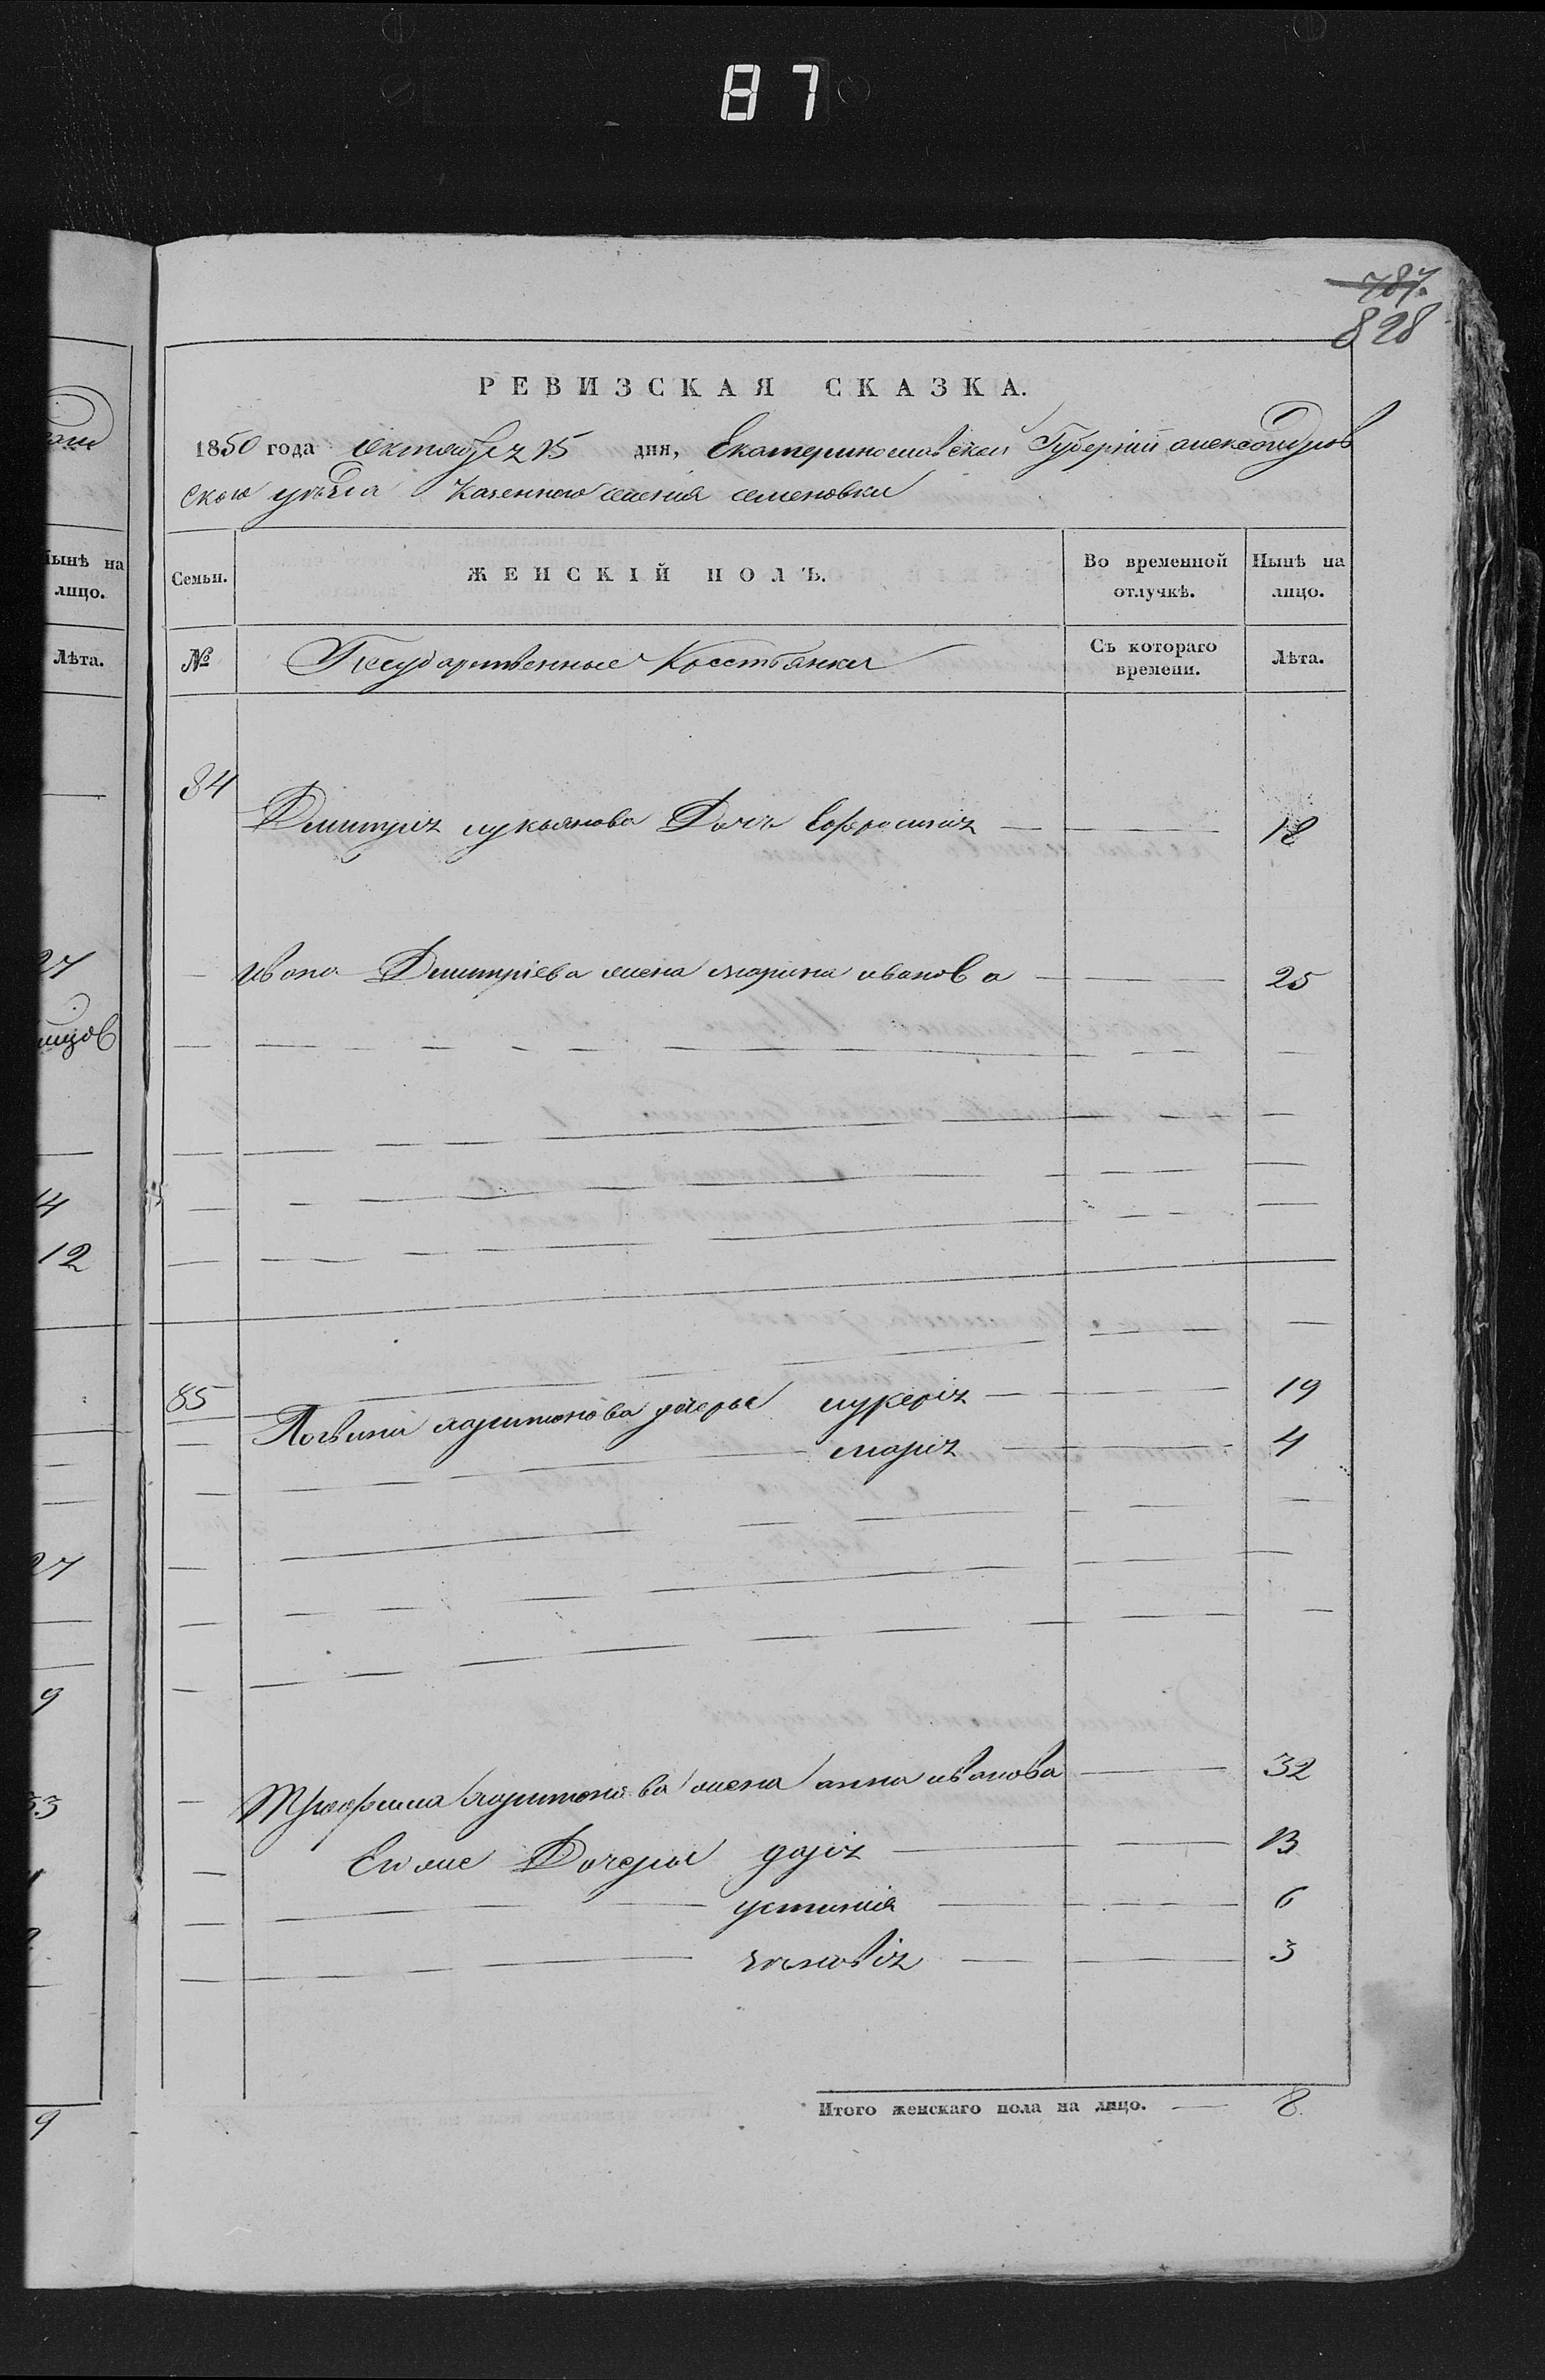 87
787.
828
РЕВИЗСКАЯ СКАЗКА.
1850 года октября 15 дня, Екатеринославской Губерніи александров
ского уѣзда Казенного селенія семеновки
Семьи.
ЖЕНСКІЙ ПОЛЪ.
Во временной отлучкѣ.
Нынѣ на лицо.
№
Государственные Крестьянки
Съ котораго времени.
Лѣта.
84
Дмитрія лукьянова Дочь Ефросинія 18
Ивана Дмитріева жена марина иванова 25
85
Логвина харитонова дочерье лукерія 19
марія 4
Трофима харитонова жена анна иванова 32
Ево же Дочерьи дарія 13
устинія 6
зѣновія 3
Итого женскаго пола на лицо. 8.
Нынѣ на
лицо.
Лѣта.
27
14
12
27
9
53
9